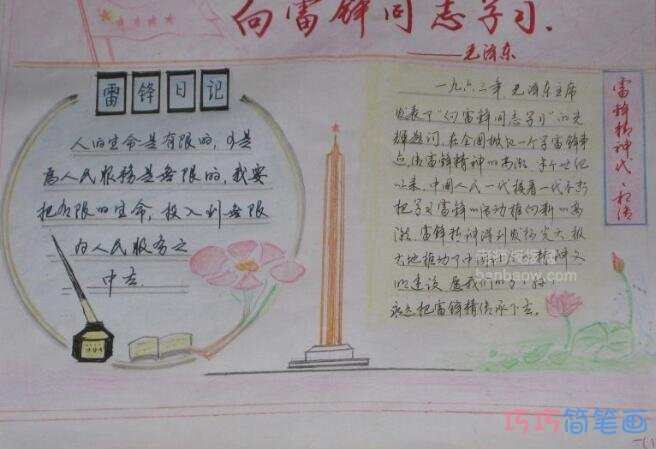 向雷锋同志学习.
——毛泽东
雷锋日记
人的生命是有限的,可是
为人民服务是无限的,我要
把有限的生命,投入到无限
的为人民服务之
中去.
一九六三年毛泽东主席
发表了“向雷锋同志学习”的光
辉题词,在全国掀起一个学雷锋
雷锋精神的高潮
以来,中国人民一代接着一代不断
把学习雷锋的活动推向新的高
潮.雷锋精神
大地推动了中国
的建设
永远把雷锋精神传承下去.
雷锋精神代代相传
巧巧简笔画
banbaow.com